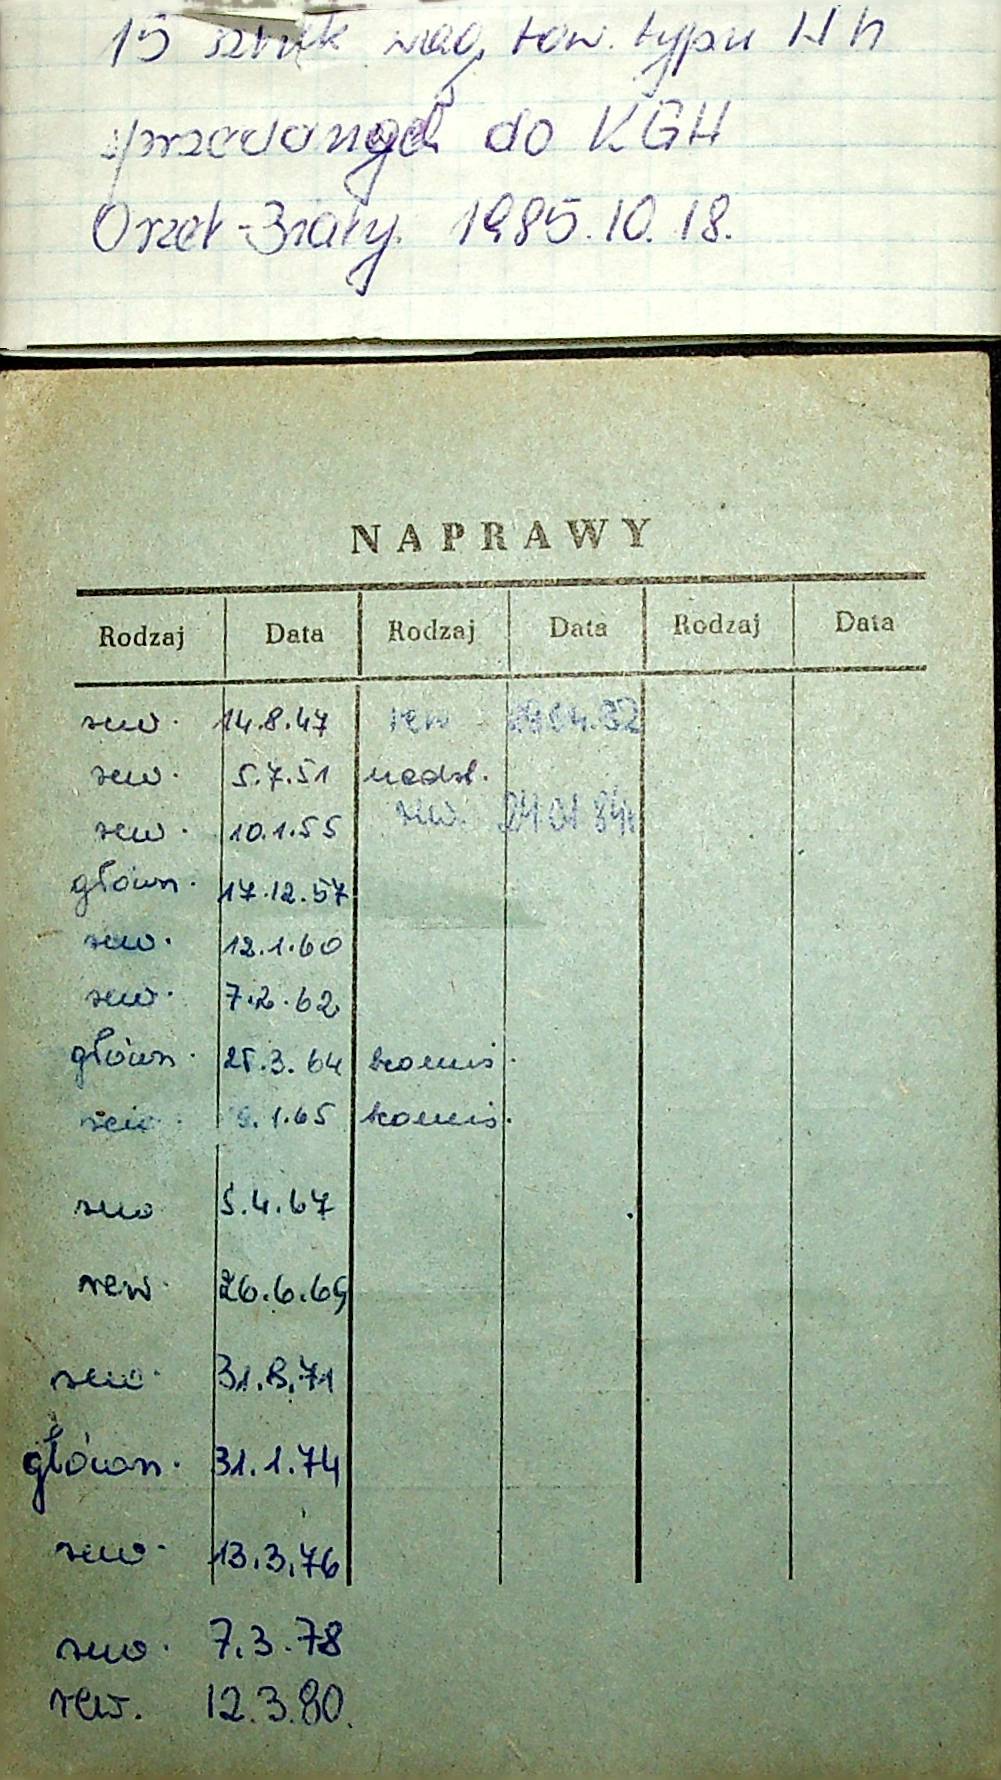 15 sztuk wag. tow. typu Hh
sprzedanych do KGH
Orzeł-Biały. 1985.10.18.
NAPRAWY
Rodzaj Data Rodzaj Data Rodzaj Data
rew. 14.8.47 rew
rew. 5.7.51 nadzl.
rew. 10.1.55 rew. 24 01 84
główn. 17.12.57
rew. 12.1.60
rew. 7.2.62
główn. 3.64 komis.
rew. 1.65 komis.
rew 5.4.67
rew. 26.6.69
rew. 31.8.71
główn. 31.1.74
rew. 13.3.76
rew. 7.3.78
rew. 12.3.80.